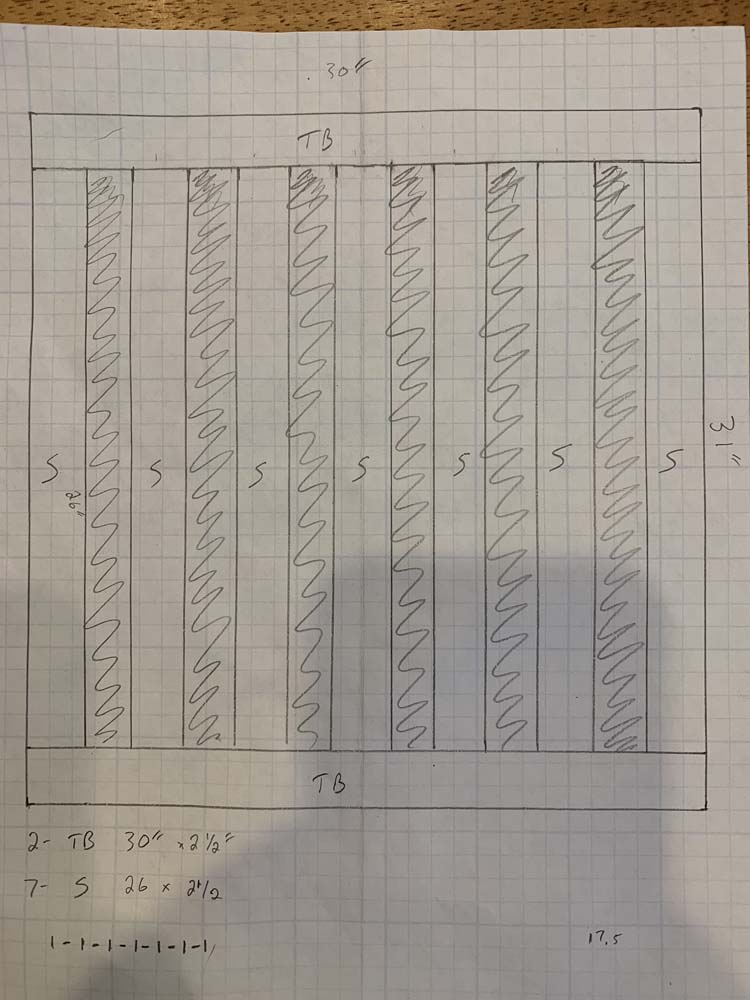 30"
TB
31"
S S S S S S S
26"
TB
2- TB 30" x 2 1/2"
7- S 26 x 2 1/2
1-1-1-1-1-1-1
17.5